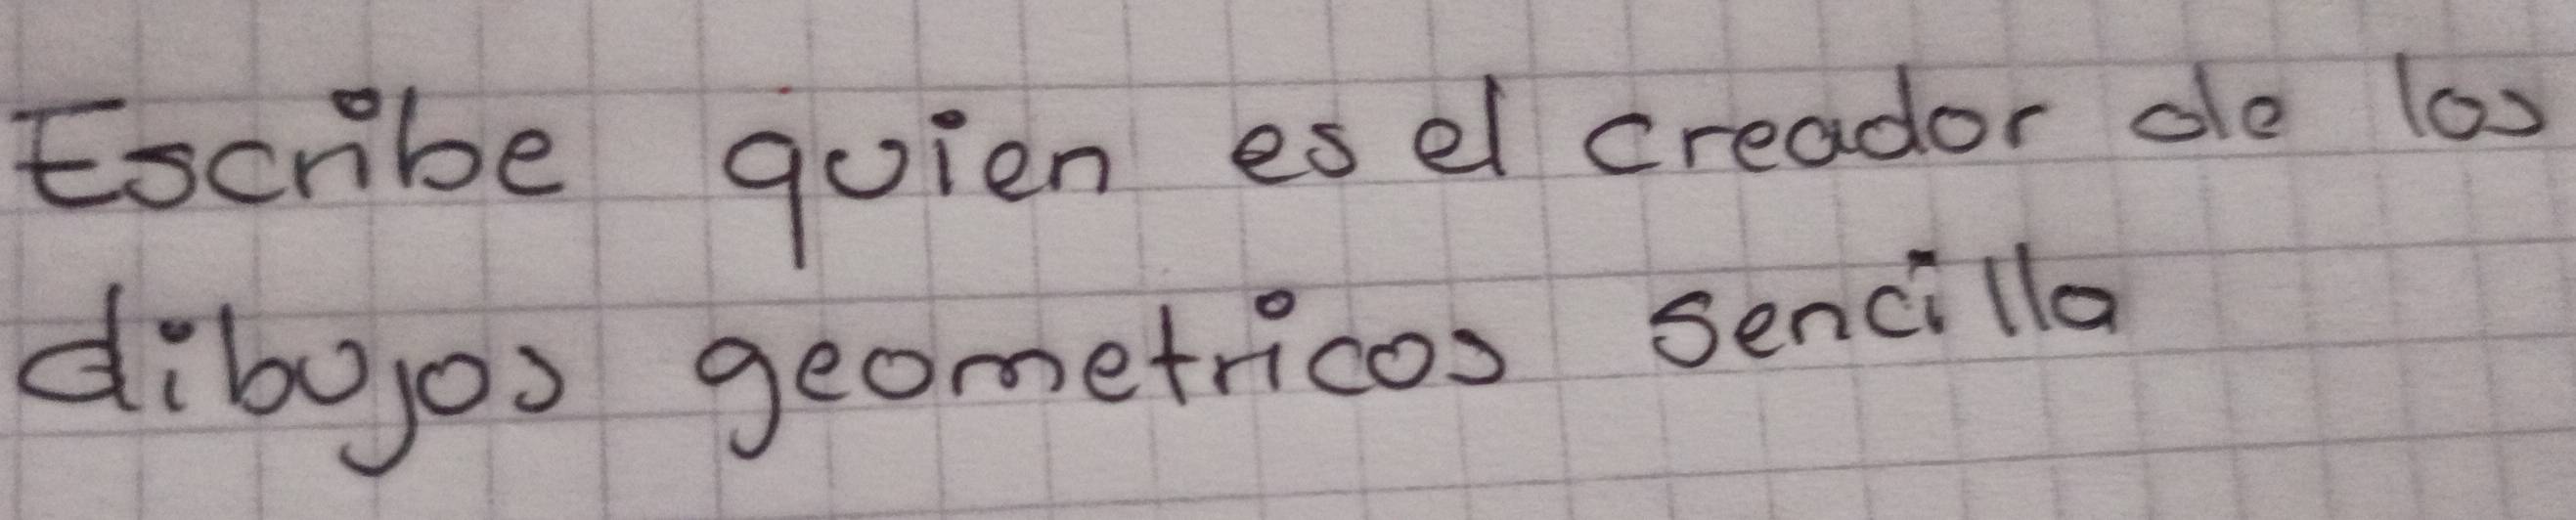 Escribe quien es el creador de los
dibujos geometricos sencilla